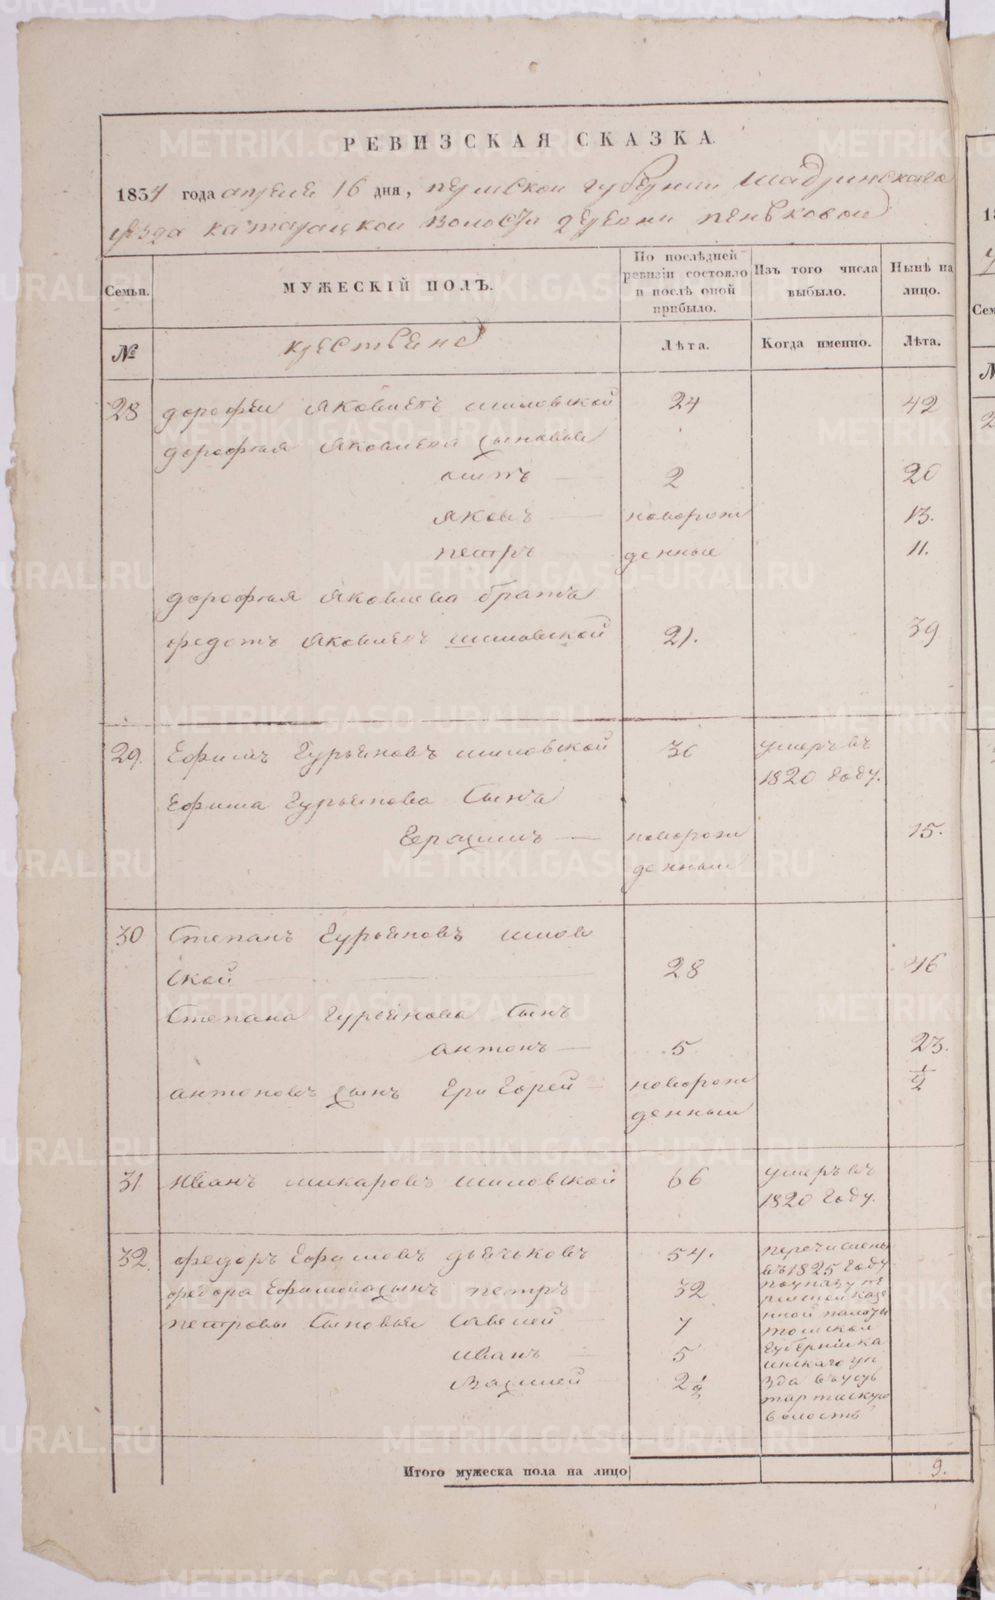 РЕВИЗСКАЯ СКАЗКА
1834 года апреля 16 дня, пермской губернии шадринскаго
уезда катайской волости деревни пеньковой
Семьи. МУЖЕСКІЙ ПОЛЪ. По послѣдней ревизіи состояло и послѣ оной прибыло. Изъ того числа выбыло. Нынѣ на лицо.
№ крестьяне Лѣта. Когда именно. Лѣта.
28 дорофеи яковлевъ шиловской 24 42
дорофея яковлева сыновья
осипъ 2 20
яковъ новорож 13.
петръ денные 11.
дорофея яковлева братъ
федотъ яковлевъ шиловской 21. 39
29. Ефимъ гурьяновъ шиловской 36 умеръ въ
1820 году.
Ефима гурьянова сынъ
Герасимъ новорож 15.
денный
30 Степанъ гурьяновъ шилов
ской 28 46
Степана гурьянова сынъ
антонъ 5 23.
антоновъ сынъ Григорей новорож ½
денный
31 Иванъ макаровъ шиловской 66 умеръ въ
1820 году.
32. федоръ Ефимовъ дьячковъ 54. перечислены
въ 1825 году
федора Ефимова сынъ петръ 32 по указу пе
рмской казе
петровы сыновья Савелей 7 нной палаты
томской
иванъ 5 губерніи ка
инскаго уе
Василей 2½ зда въ усть
тартаскую
волость
Итого мужеска пола на лицо 9.
METRIKI.GASO-URAL.RU